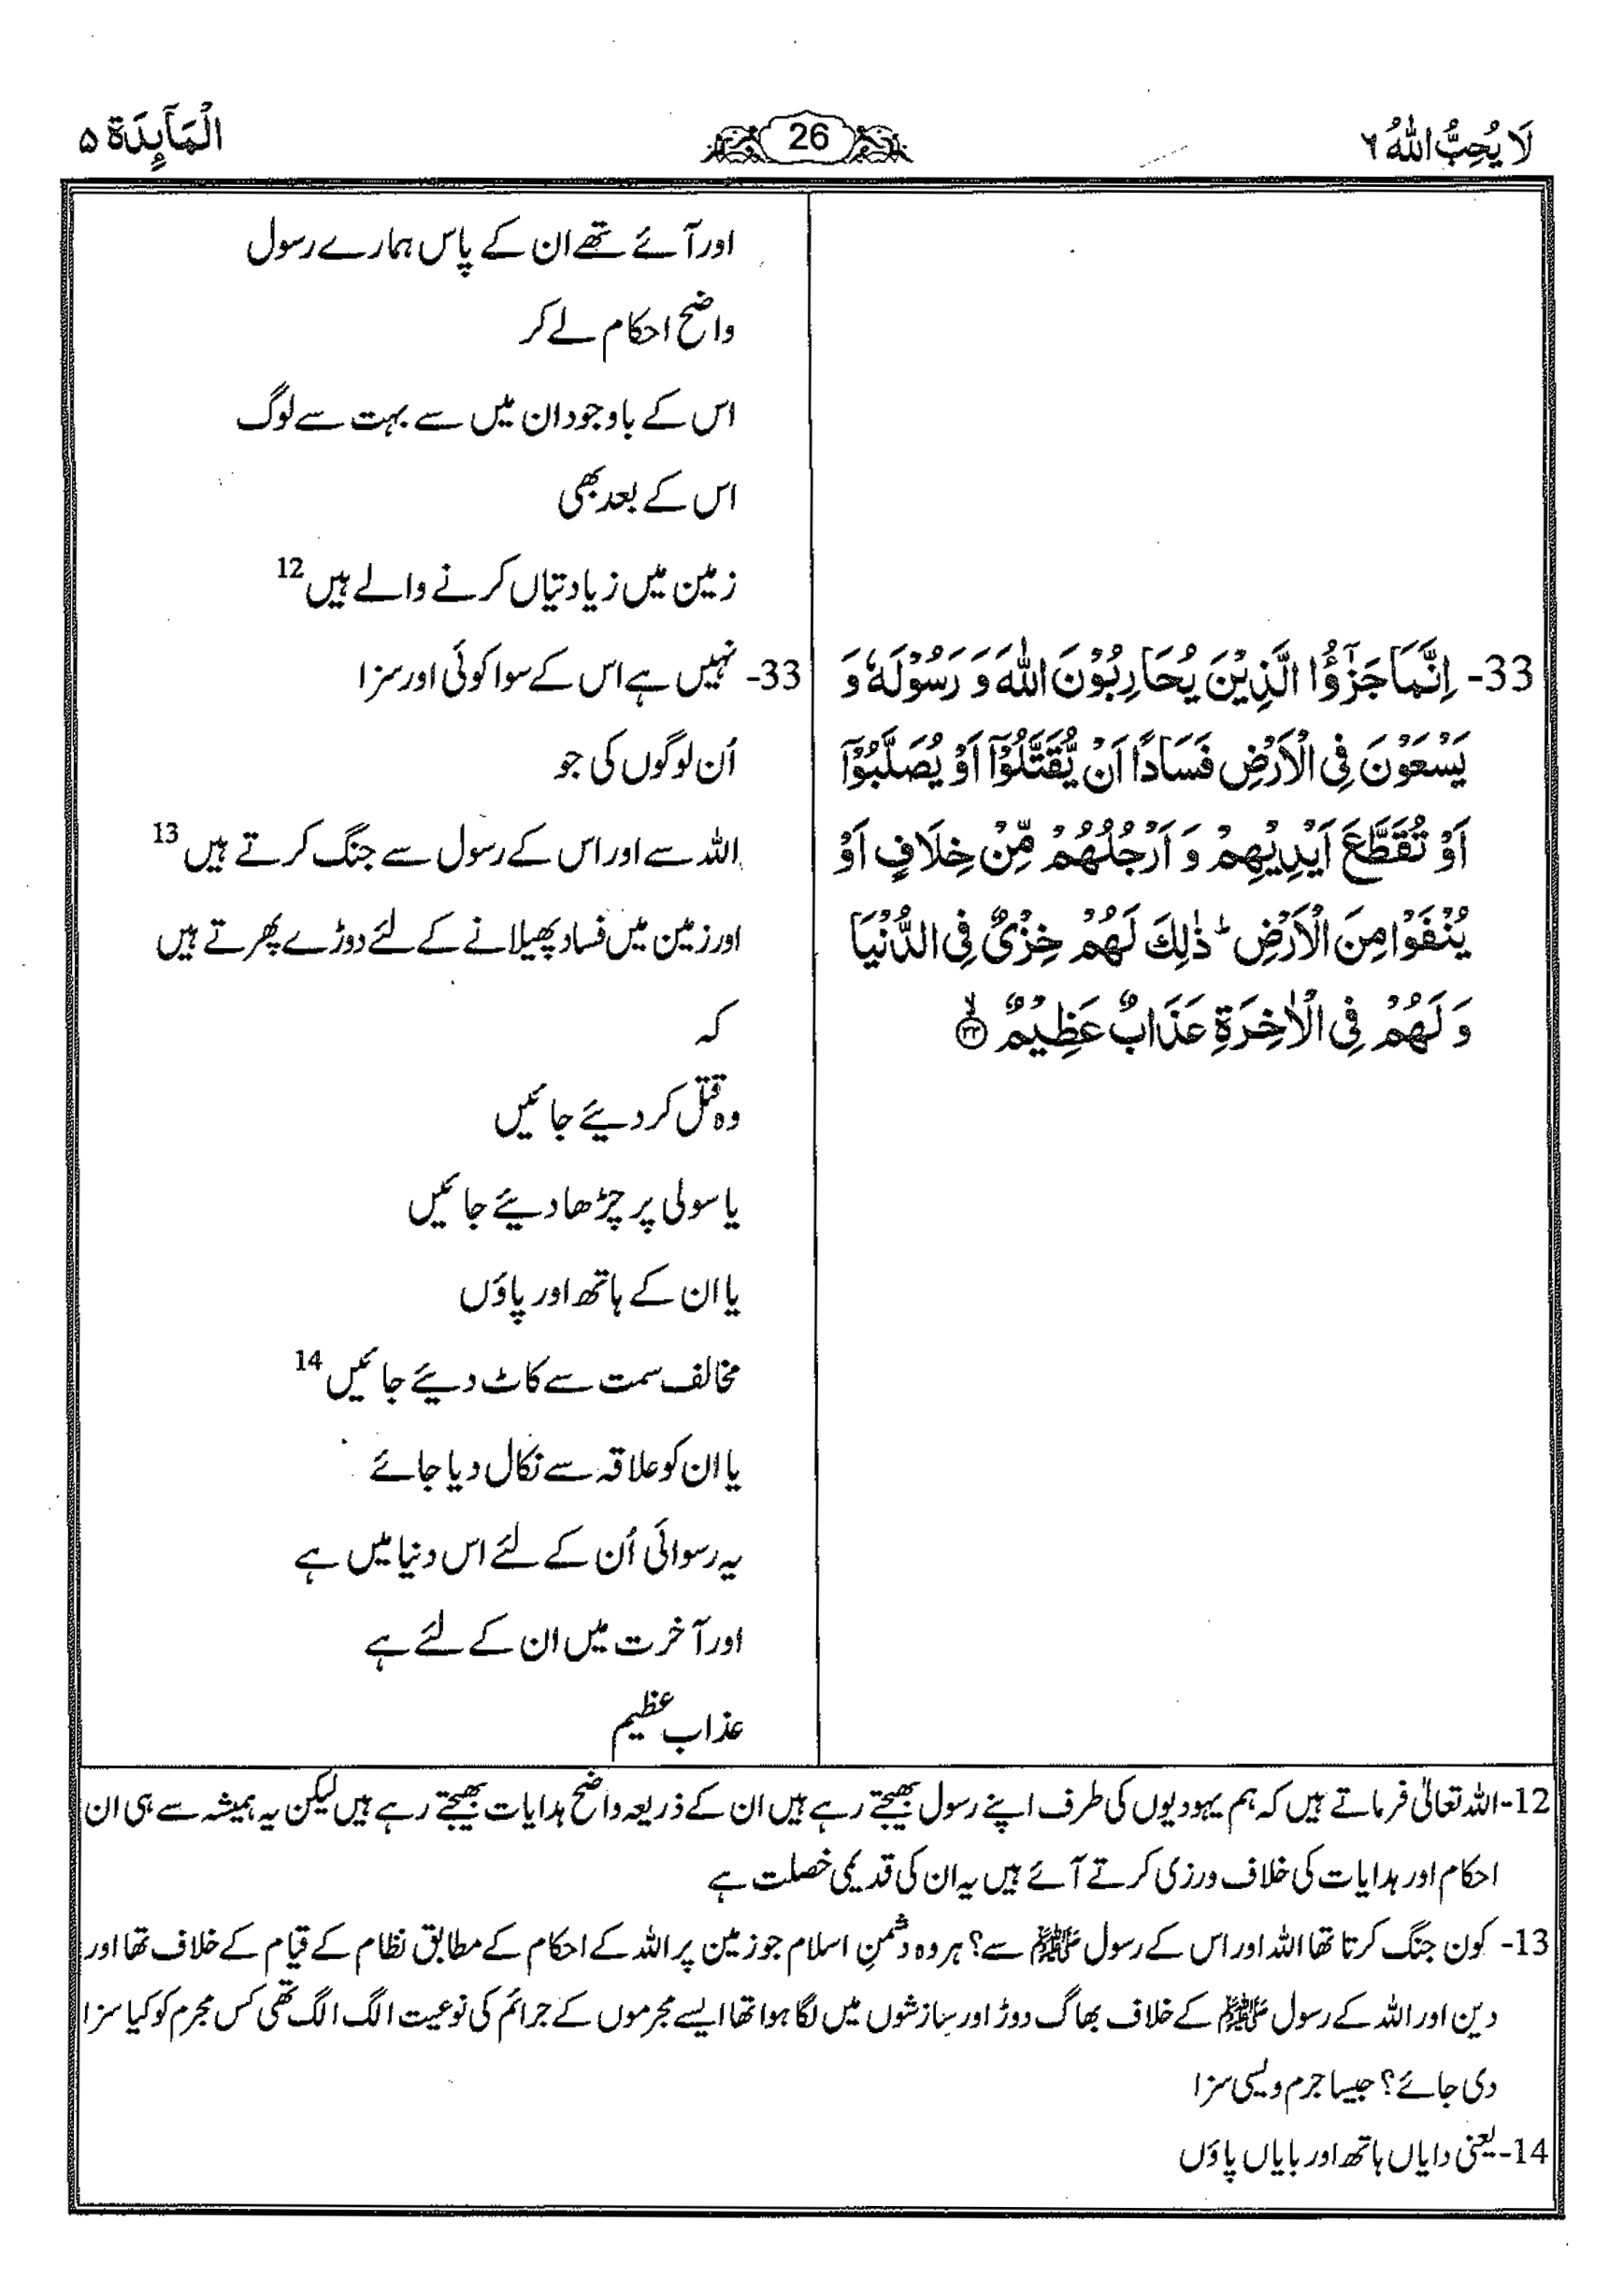 لَا يُحِبُّ اللّٰهُ ٦
26
الْمَآئِدَة ٥
اور آئے تھے ان کے پاس ہمارے رسول
واضح احکام لے کر
اس کے باوجود ان میں سے بہت سے لوگ
اس کے بعد بھی
زمین میں زیادتیاں کرنے والے ہیں 12
33- اِنَّمَا جَزٰٓؤُا الَّذِيْنَ يُحَارِبُوْنَ اللّٰهَ وَ رَسُوْلَهٗ وَ
يَسْعَوْنَ فِى الْاَرْضِ فَسَادًا اَنْ يُّقَتَّلُوْٓا اَوْ يُصَلَّبُوْٓا
اَوْ تُقَطَّعَ اَيْدِيْهِمْ وَ اَرْجُلُهُمْ مِّنْ خِلَافٍ اَوْ
يُنْفَوْا مِنَ الْاَرْضِ ؕ ذٰلِكَ لَهُمْ خِزْىٌ فِى الدُّنْيَا
وَ لَهُمْ فِى الْاٰخِرَةِ عَذَابٌ عَظِيْمٌ ۙ ﴿۳۳﴾
33- نہیں ہے اس کے سوا کوئی اور سزا
اُن لوگوں کی جو
اللہ سے اور اس کے رسول سے جنگ کرتے ہیں 13
اور زمین میں فساد پھیلانے کے لئے دوڑے پھرتے ہیں
کہ
وہ قتل کر دیئے جائیں
یا سولی پر چڑھا دیئے جائیں
یا ان کے ہاتھ اور پاؤں
مخالف سمت سے کاٹ دیئے جائیں 14
یا ان کو علاقہ سے نکال دیا جائے
یہ رسوائی اُن کے لئے اس دنیا میں ہے
اور آخرت میں ان کے لئے ہے
عذاب عظیم
12- اللہ تعالٰی فرماتے ہیں کہ ہم یہودیوں کی طرف اپنے رسول بھیجتے رہے ہیں ان کے ذریعہ واضح ہدایات بھیجتے رہے ہیں لیکن یہ ہمیشہ سے ہی ان
احکام اور ہدایات کی خلاف ورزی کرتے آئے ہیں یہ ان کی قدیمی خصلت ہے
13- کون جنگ کرتا تھا اللہ اور اس کے رسول ﷺ سے؟ ہر وہ دشمنِ اسلام جو زمین پر اللہ کے احکام کے مطابق نظام کے قیام کے خلاف تھا اور
دین اور اللہ کے رسول ﷺ کے خلاف بھاگ دوڑ اور سازشوں میں لگا ہوا تھا ایسے مجرموں کے جرائم کی نوعیت الگ الگ تھی کس مجرم کو کیا سزا
دی جائے؟ جیسا جرم ویسی سزا
14- یعنی دایاں ہاتھ اور بایاں پاؤں